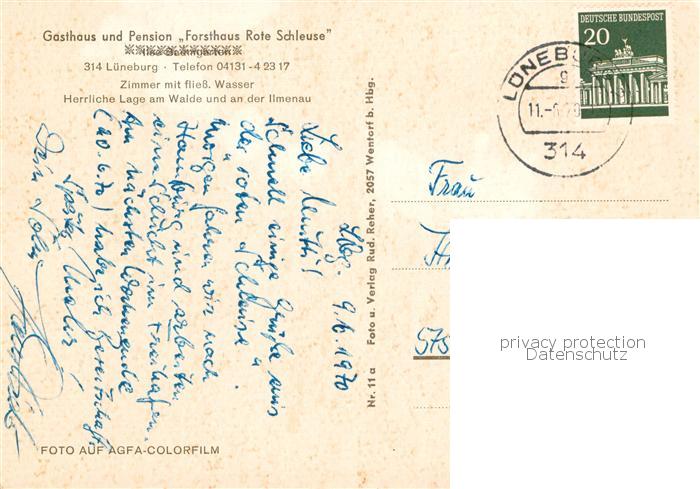 Gasthaus und Pension „Forsthaus Rote Schleuse"
314 Lüneburg · Telefon 04131-4 23 17
Zimmer mit fließ. Wasser
Herrliche Lage am Walde und an der Ilmenau
DEUTSCHE BUNDESPOST
20
LÜNEBU
g
11.-6.70
314
Lbg. 9.6.1970
Liebe Mutti!
Schnell einige Grüße aus
der "roten Schleuse".
Morgen fahren wir nach
Hamburg und arbeiten
eine Schicht im Freihafen.
Am nächsten Wochenende
(20.6.70) habe ich Bereitschaft.
Später Mehr!
Dein Sohn
Nr. 11 a Foto u. Verlag Rud. Reher, 2057 Wentorf b. Hbg.
Frau
575
privacy protection
Datenschutz
FOTO AUF AGFA-COLORFILM